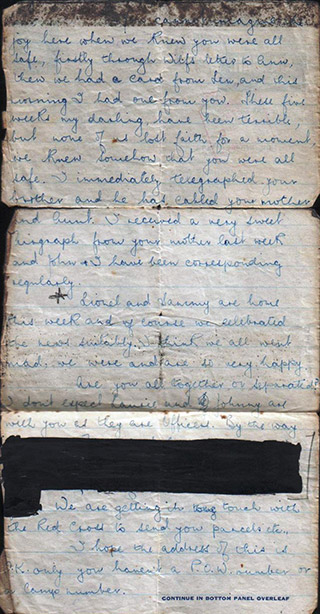 joy here when we knew you were all
safe, firstly through Wilf's letter to Ann,
then we had a card from Len, and this
morning I had one from you. These five
weeks my darling have been terrible
but none of us lost faith for a moment
we knew somehow that you were all
safe. I immediately telegraphed your
brother and he has called your mother
and Aunt. I received a very sweet
airgraph from your mother last week
and John & I have been corresponding
regularly.
Lionel and Sammy are home
this week and of course we celebrated
the news suitably. I think we all went
mad, we were and are so very happy.
Are you all together or separated?
I don't expect Laurie and Johnny are
with you as they are Officers. By the way
We are getting in touch with
the Red Cross to send you parcels etc.,
I hope the address of this is
O.K. only you haven't a P.O.W. number or
a Camp number.
CONTINUE IN BOTTOM PANEL OVERLEAF